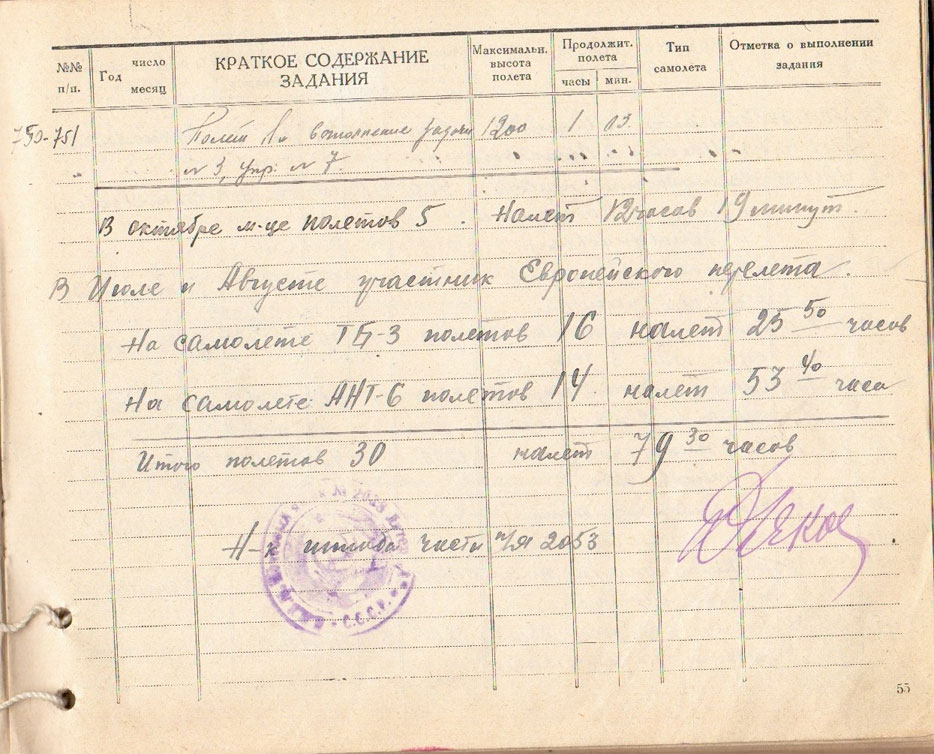 №№ п/п.
Год
число
месяц
КРАТКОЕ СОДЕРЖАНИЕ
ЗАДАНИЯ
Максимальн.
высота
полета
Продолжит.
полета
часы
мин.
Тип
самолета
Отметка о выполнении
задания
750-751 Полет выполнение задачи 1200 1 13
№ 3, упр. № 7.
В октябре м-це полетов 5. Налет 12 часов 19 минут.
В Июле и Августе участник Европейского перелета.
На самолете ТБ-3 полетов 16 налет 25 50 часов
На самолете АНТ-6 полетов 14 налет 53 40 часа
Итого полетов 30 налет 79 30 часов
Н-к штаба части п/я 2053
С.С.С.Р.
55